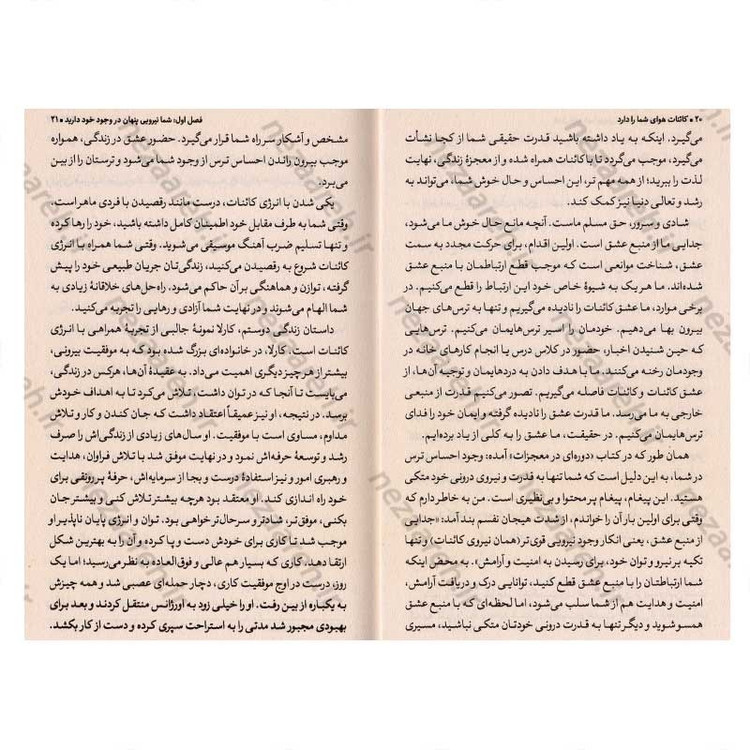 ۲۰ ● کائنات هوای شما را دارد
می‌گیرد. اینکه به یاد داشته باشید قدرت حقیقی شما از کجا نشأت
می‌گیرد، موجب می‌گردد تا با کائنات همراه شده و از معجزهٔ زندگی، نهایت
لذت را ببرید؛ از همه مهم تر، این احساس و حال خوش شما، می‌تواند به
رشد و تعالی دنیا نیز کمک کند.
شادی و سرور، حق مسلم ماست. آنچه مانع حال خوش ما می‌شود،
جدایی ما از منبع عشق است. اولین اقدام، برای حرکت مجدد به سمت
عشق، شناخت موانعی است که موجب قطع ارتباطمان با منبع عشق
شده‌اند. ما هر یک به شیوهٔ خاص خود این ارتباط را قطع می‌کنیم. در
برخی موارد، ما عشق کائنات را نادیده می‌گیریم و تنها به ترس‌های جهان
بیرون بها می‌دهیم. خودمان را اسیر ترس‌هایمان می‌کنیم. ترس‌هایی
که حین شنیدن اخبار، حضور در کلاس درس یا انجام کارهای خانه در
وجودمان رخنه می‌کنند. ما با هدف دادن به دردهایمان و توجیه آن‌ها، از
عشق کائنات و کائنات فاصله می‌گیریم. تصور می‌کنیم قدرت از منبعی
خارجی به ما می‌رسد. ما قدرت عشق را نادیده گرفته و ایمان خود را فدای
ترس‌هایمان می‌کنیم. در حقیقت، ما عشق را به کلی از یاد برده‌ایم.
همان طور که در کتاب «دوره‌ای در معجزات» آمده: وجود احساس ترس
در شما، به این دلیل است که شما تنها به قدرت و نیروی درونی خود متکی
هستید. این پیغام، پیغام پرمحتوا و بی‌نظیری است. من به خاطر دارم که
وقتی برای اولین بار آن را خواندم، از شدت هیجان نفسم بند آمد: «جدایی
از منبع عشق، یعنی انکار وجود نیرویی قوی‌تر (همان نیروی کائنات) و تنها
تکیه بر نیرو و توان خود، برای رسیدن به امنیت و آرامش». به محض اینکه
شما ارتباطتان را با منبع عشق قطع کنید، توانایی درک و دریافت آرامش،
امنیت و هدایت هم از شما سلب می‌شود، اما لحظه‌ای که با منبع عشق
همسو شوید و دیگر تنها به قدرت درونی خودتان متکی نباشید، مسیری
فصل اول: شما نیرویی پنهان در وجود خود دارید ● ۲۱
مشخص و آشکار سر راه شما قرار می‌گیرد. حضور عشق در زندگی، همواره
موجب بیرون راندن احساس ترس از وجود شما می‌شود و ترستان را از بین
می‌برد.
یکی شدن با انرژی کائنات، درست مانند رقصیدن با فردی ماهر است.
وقتی شما به طرف مقابل خود اطمینان کامل داشته باشید، خود را رها کرده
و تنها تسلیم ضرب آهنگ موسیقی می‌شوید. وقتی شما همراه با انرژی
کائنات شروع به رقصیدن می‌کنید، زندگی‌تان جریان طبیعی خود را پیش
گرفته، توازن و هماهنگی بر آن حاکم می‌شود. راه‌حل‌های خلاقانهٔ زیادی به
شما الهام می‌شوند و در نهایت شما آزادی و رهایی را تجربه می‌کنید.
داستان زندگی دوستم، کارلا نمونهٔ جالبی از تجربهٔ همراهی با انرژی
کائنات است. کارلا، در خانواده‌ای بزرگ شده بود که به موفقیت بیرونی،
بیشتر از هر چیز دیگری اهمیت می‌داد. به عقیدهٔ آن‌ها، هرکس در زندگی،
می‌بایست تا آنجا که در توان داشت، تلاش می‌کرد تا به اهداف خودش
برسد. در نتیجه، او نیز عمیقاً اعتقاد داشت که جان کندن و کار و تلاش
مداوم، مساوی است با موفقیت. او سال‌های زیادی از زندگی‌اش را صرف
رشد و توسعهٔ حرفه‌اش نمود و در نهایت موفق شد با تلاش فراوان، هدایت
و رهبری امور و نیز استفادهٔ درست و بجا از سرمایه‌اش، حرفهٔ پررونقی برای
خود راه اندازی کند. او معتقد بود هرچه بیشتر تلاش کنی و بیشتر جان
بکنی، موفق‌تر، شادتر و سرحال‌تر خواهی بود. توان و انرژی پایان ناپذیر او
موجب شد تا کاری برای خودش دست و پا کرده و آن را به بهترین شکل
ارتقا دهد. کاری که بسیار هم عالی و فوق‌العاده به نظر می‌رسید؛ اما یک
روز، درست در اوج موفقیت کاری، دچار حمله‌ای عصبی شد و همه چیزش
به یکباره از بین رفت. او را خیلی زود به اورژانس منتقل کردند و بعد برای
بهبودی مجبور شد مدتی را به استراحت سپری کرده و دست از کار بکشد.
nezaareh.ir